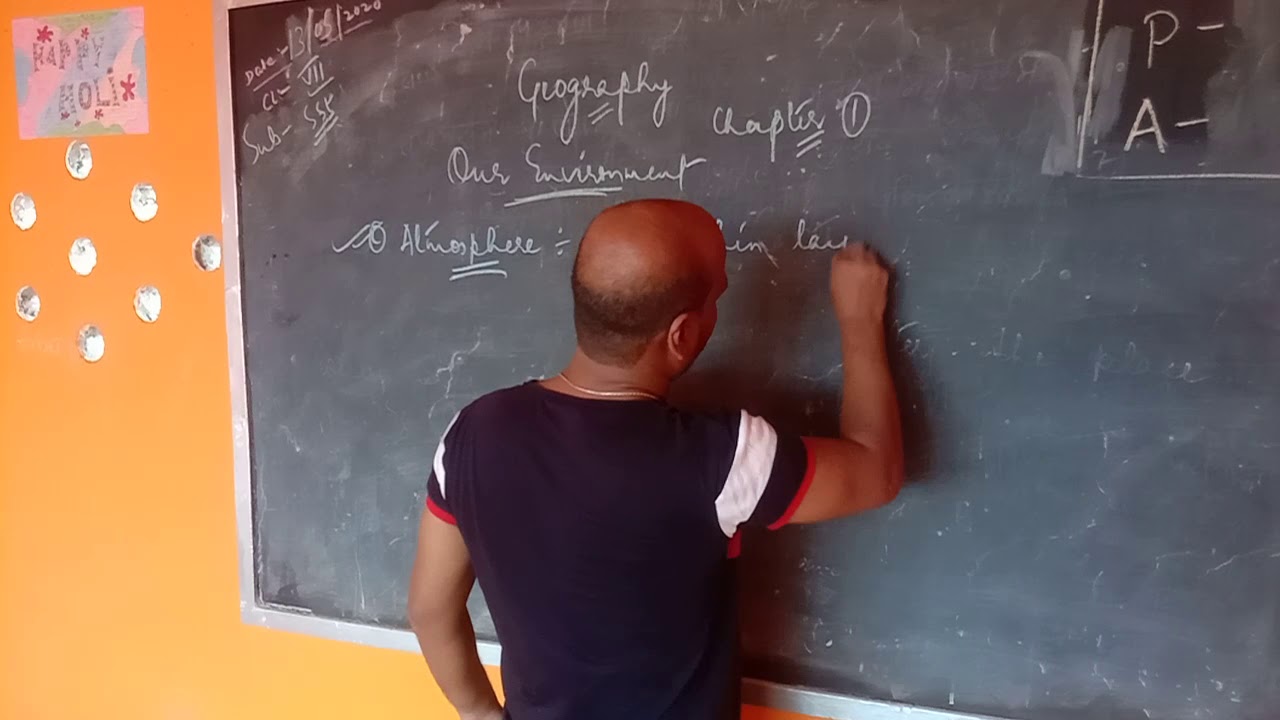 HAPPY
HOLI
Date:- 13/05/2020
Cl:- VII
Sub- SST
Geography
Chapter ①
Our Environment
① Atmosphere :- thin lay
P -
A -
the place